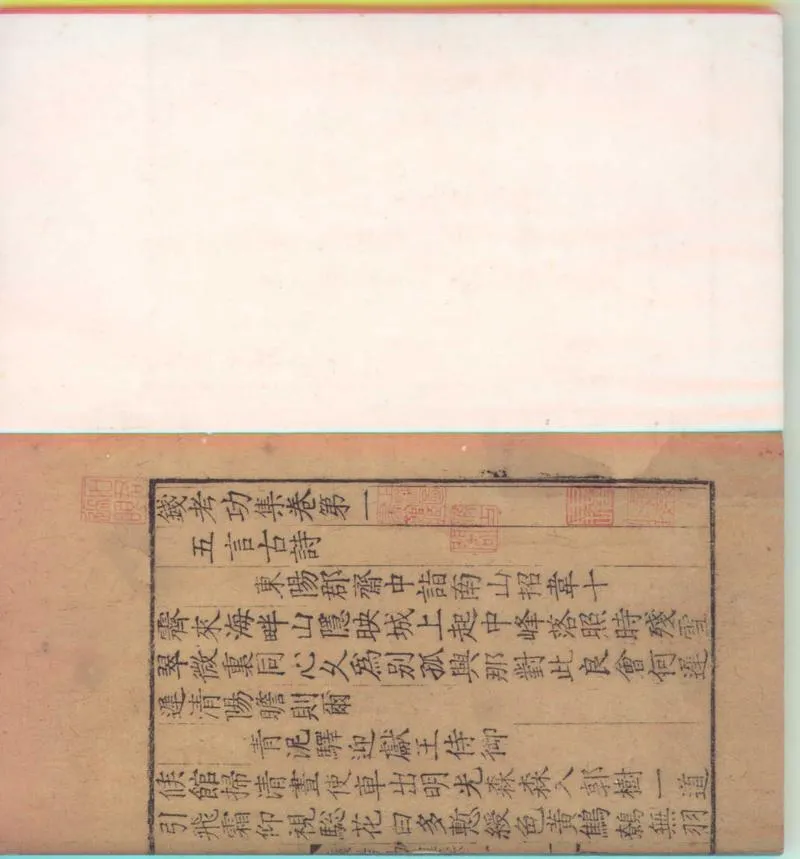 錢考功集卷第一
五言古詩
東陽郡齋中詣南山招韋十
霽來海畔山隱映城上起中峰落照時殘雪
翠微裏同心久為別孤興那對此良會何遲
遲清陽瞻則爾
青泥驛迎獻王侍御
候館掃清晝使車出明光森森入郭樹一道
引飛霜仰視騘花白多慙綬色黃鷦鷯無羽